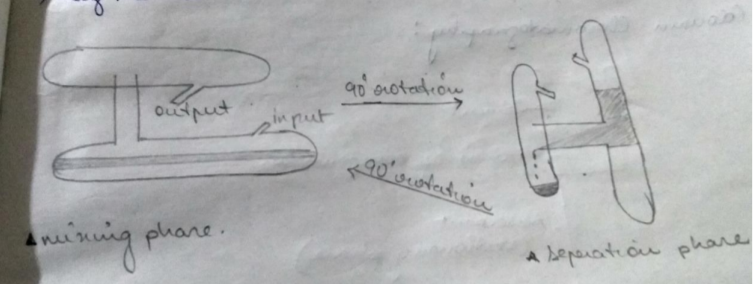 output
input
90° rotation
90° rotation
mixing phase.
seperation phase